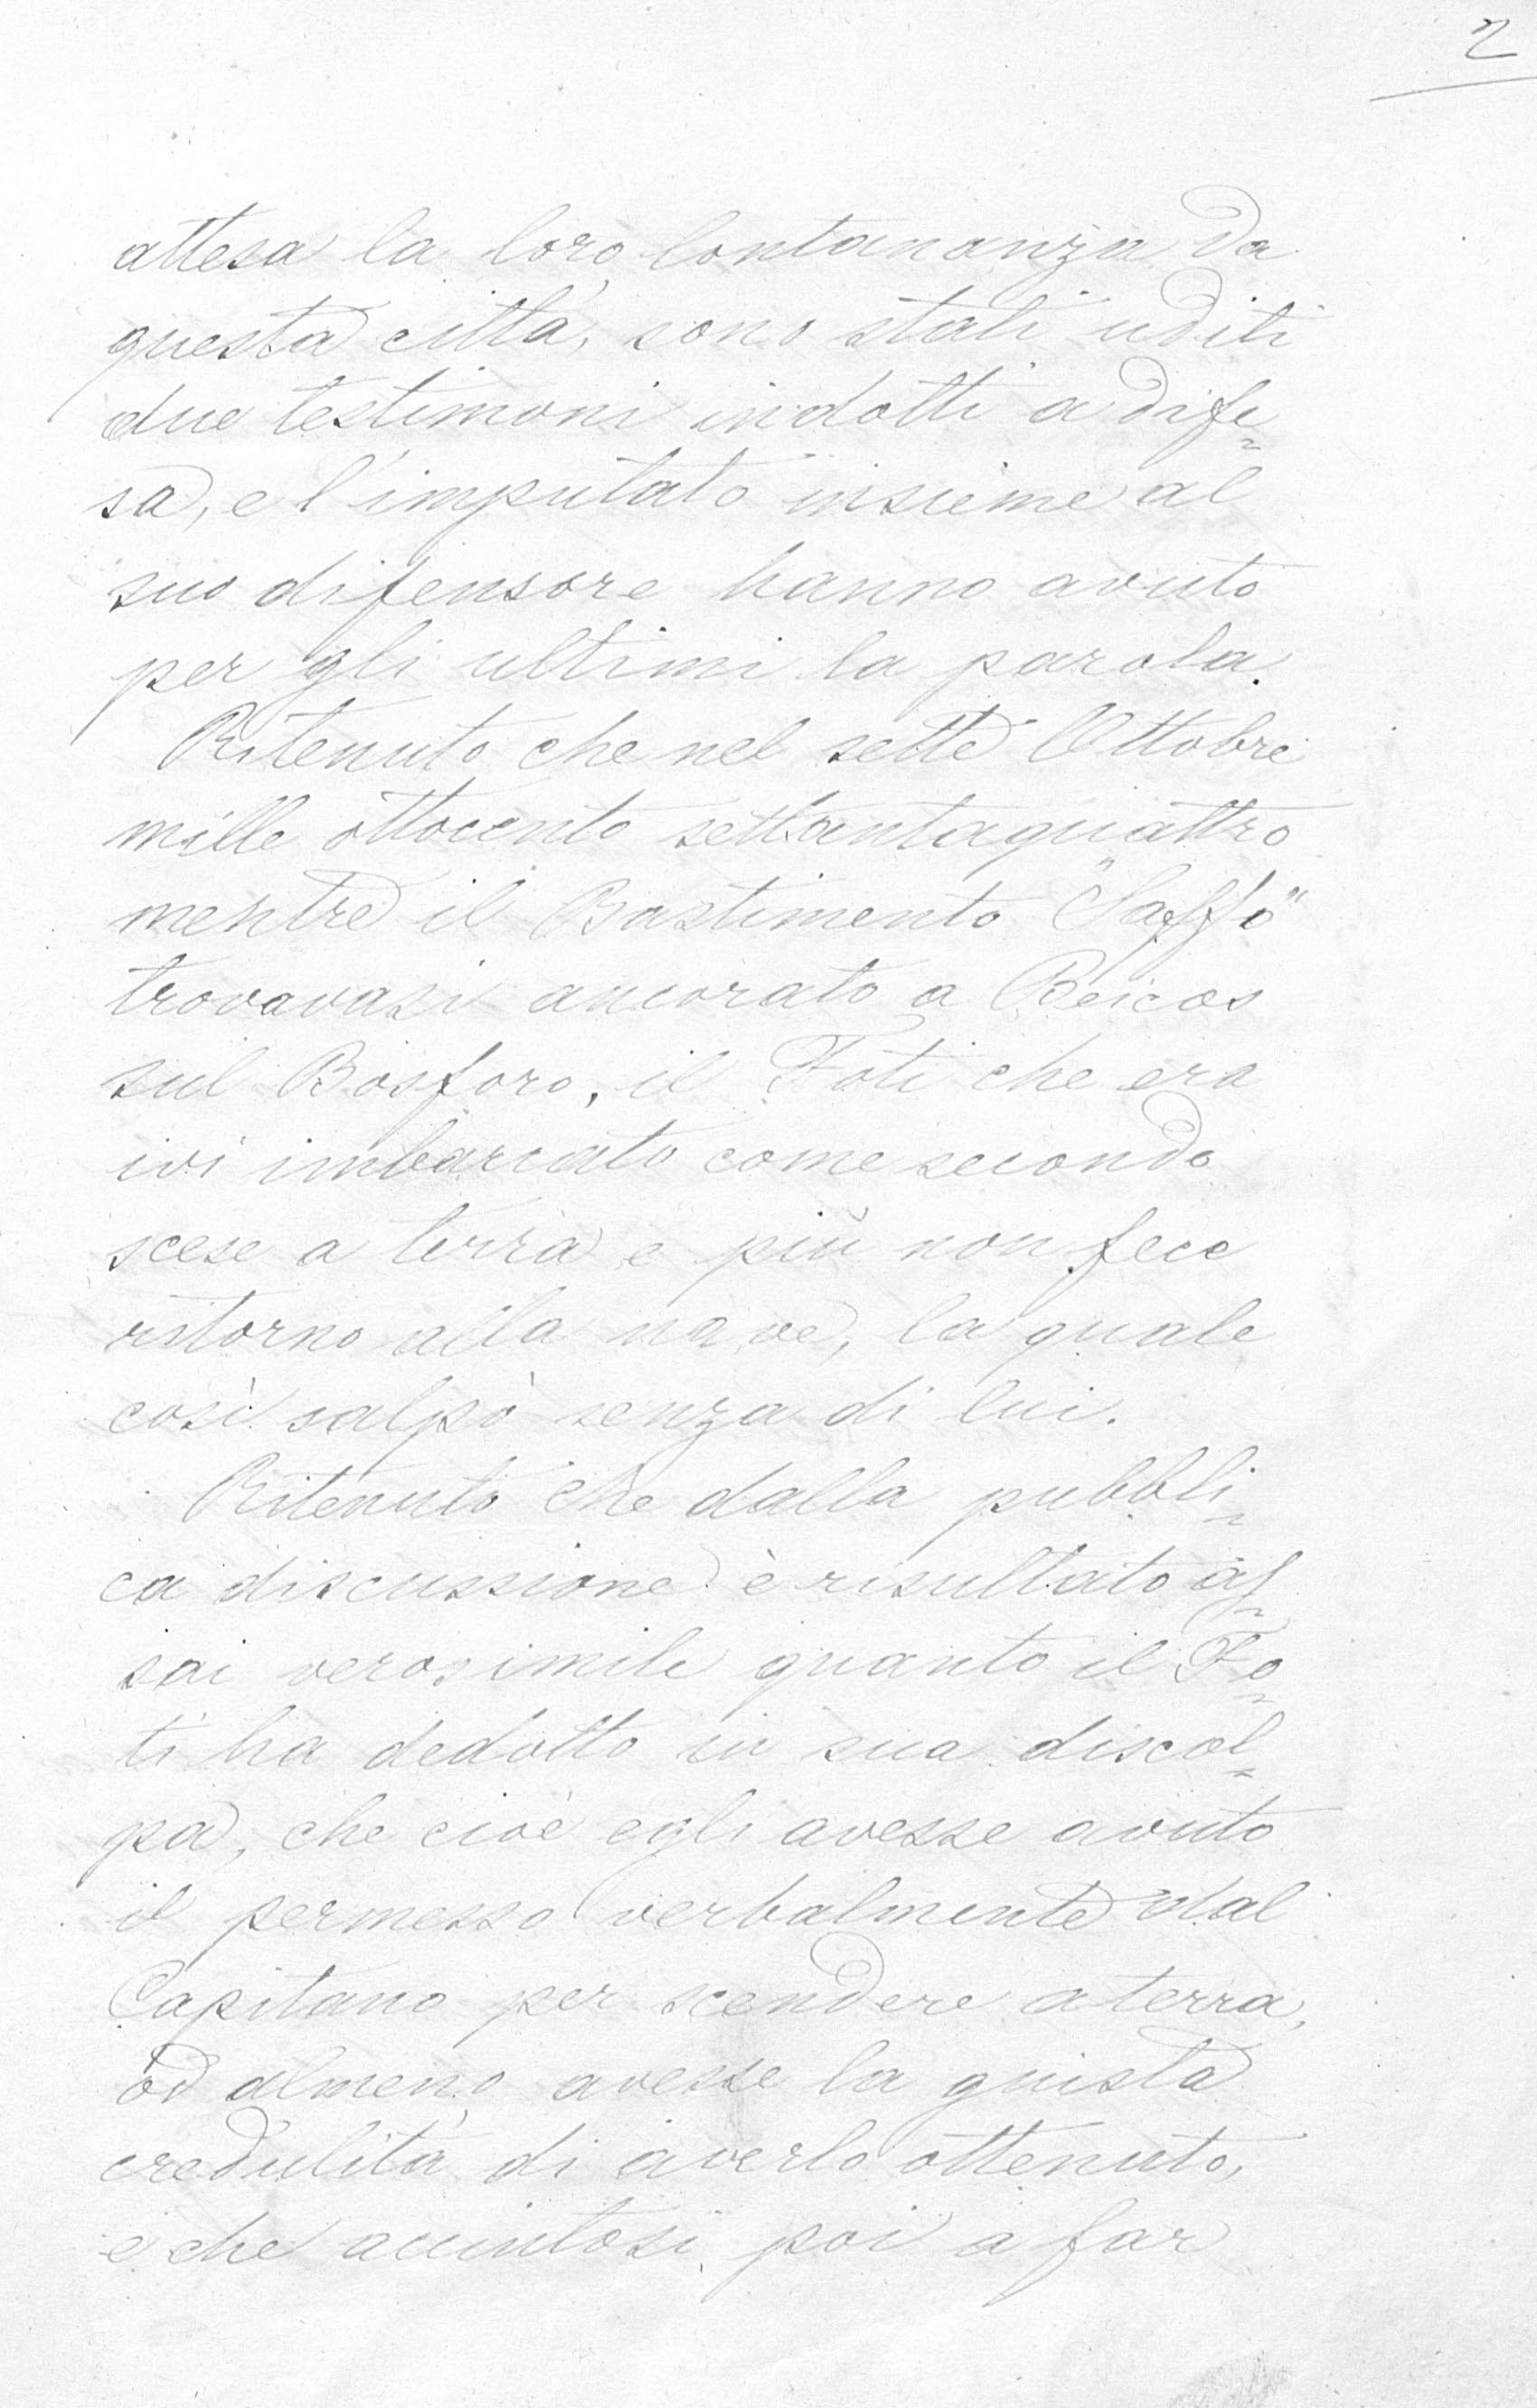 2
attesa la loro lontananza da
questa città, sono stati uditi
due testimoni indotti a dife-
sa, e l'imputato insieme al
suo difensore hanno avuto
per gli ultimi la parola.
Ritenuto che nel sette Ottobre
mille ottocento settantaquattro
mentre il Bastimento "Saffo"
trovavasi ancorato a Beicos
sul Bosforo, il Foti che era
ivi imbarcato come secondo
scese a terra e più non fece
ritorno alla nave, la quale
così salpò senza di lui.
Ritenuto che dalla pubbli-
ca discussione è risultato as-
sai verosimile quanto il Fo-
ti ha dedotto in sua discol-
pa, che cioè egli avesse avuto
il permesso verbalmente dal
Capitano per scendere a terra,
od almeno avesse la giusta
credulità di averlo ottenuto,
e che accintosi poi a far